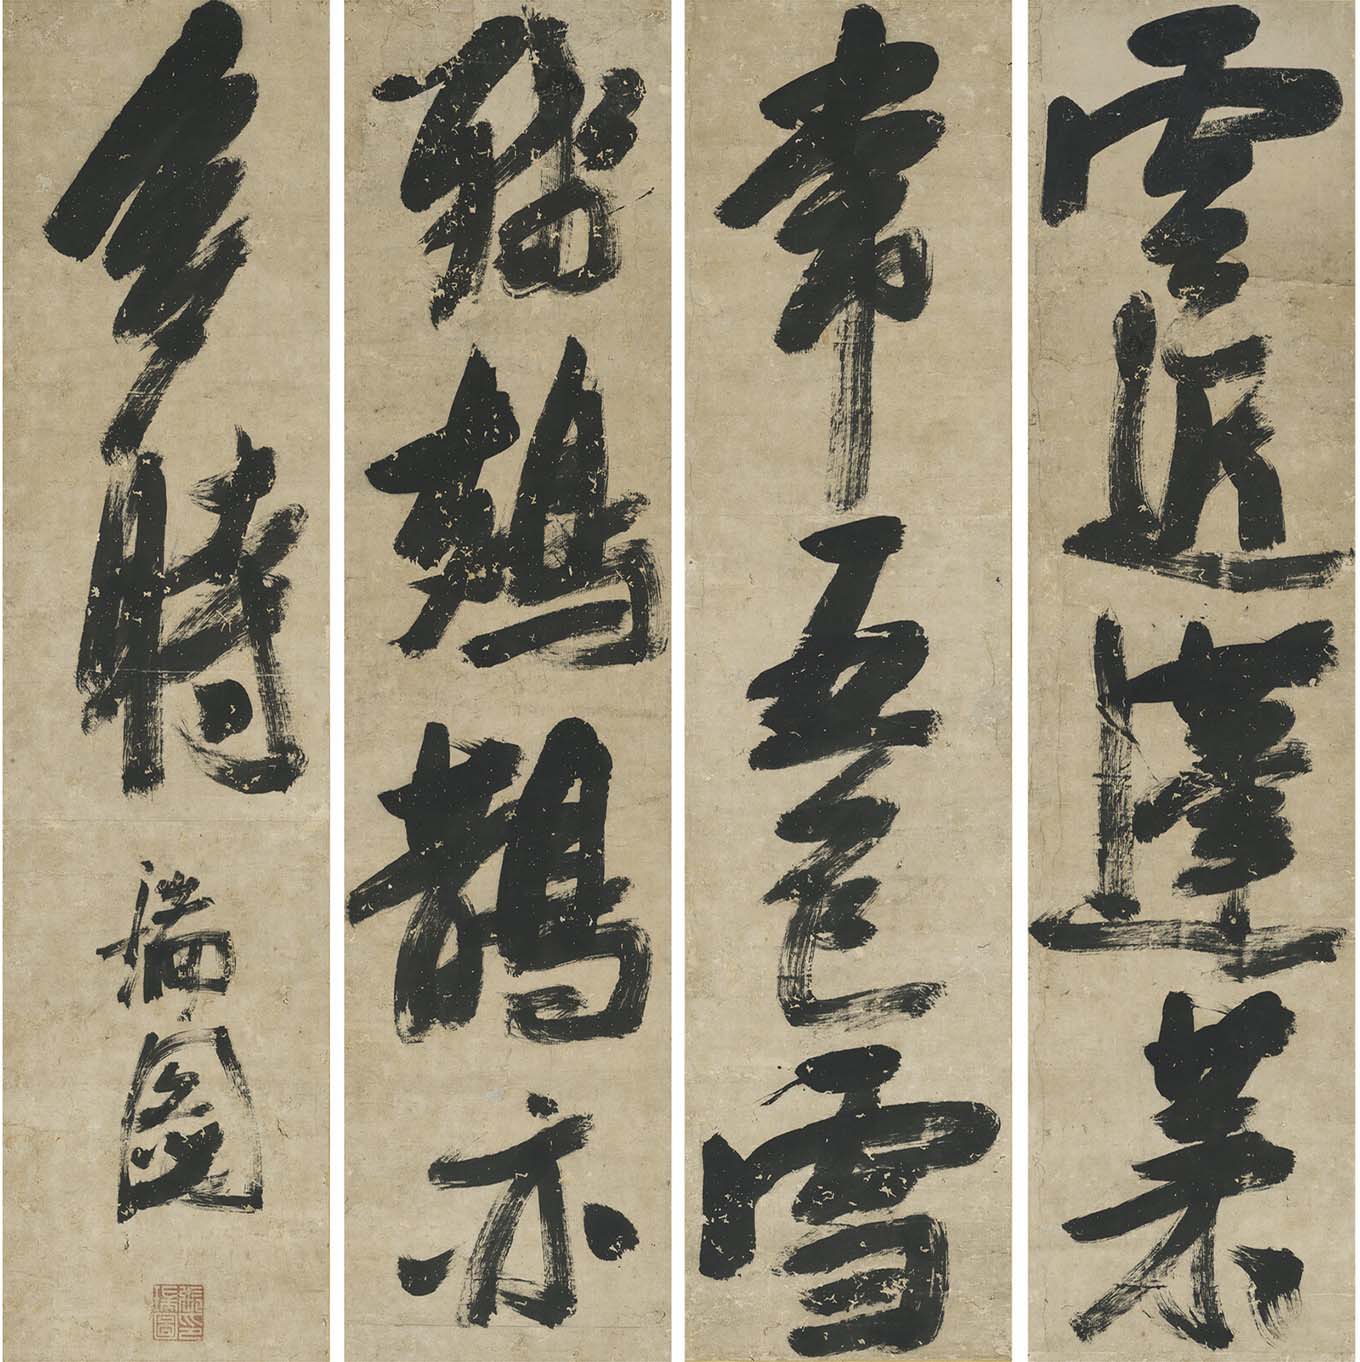 雲近蓬萊
常五色雪
殘鳷鵲亦
多時
瑞圖
張瑞圖印